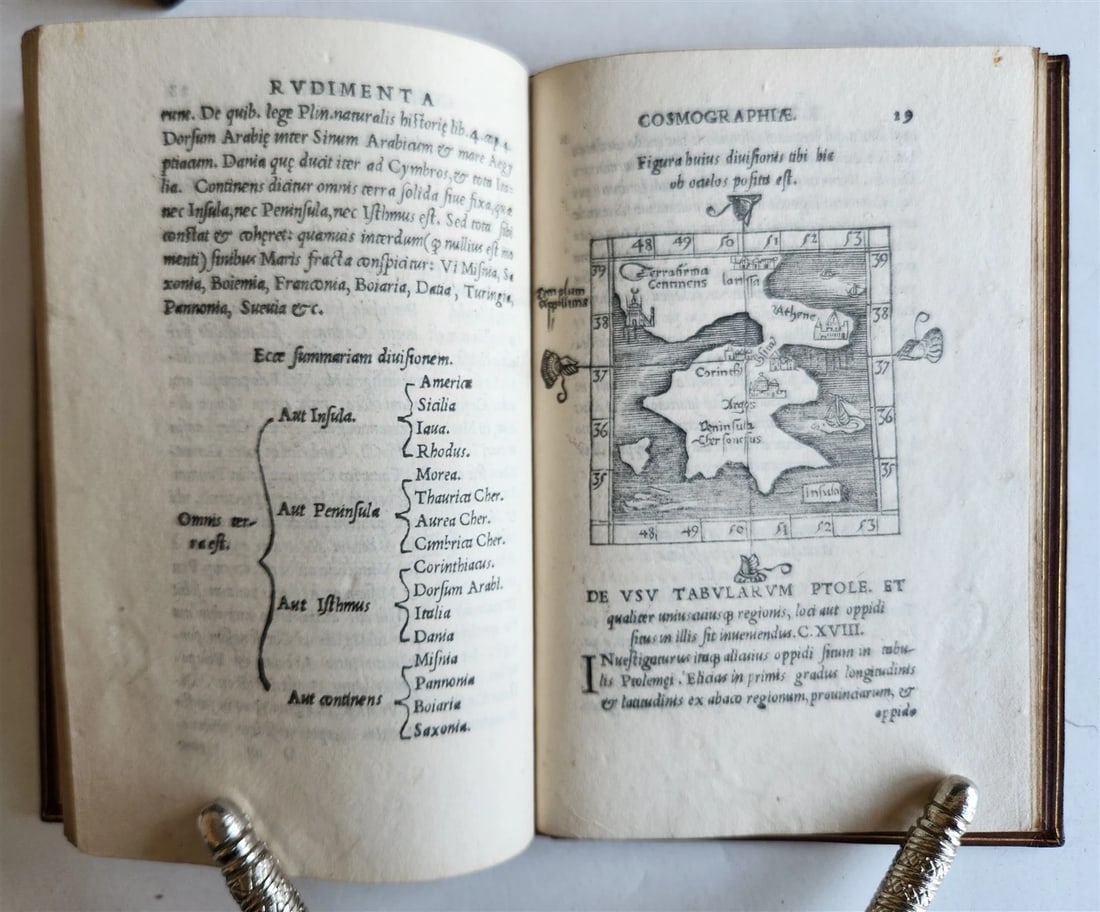 RVDIMENTA
rum. De quib. lege Plin. naturalis historię lib. 4. cap. 4.
Dorsum Arabię inter Sinum Arabicum & mare Aegy
ptiacum. Dania quę ducit iter ad Cymbros, & tota Ita-
lia. Continens dicitur omnis terra solida siue fixa, quæ
nec Insula, nec Peninsula, nec Isthmus est. Sed tota sibi
constat & cohęret: quamuis interdum (q nullius est mo
menti) finibus Maris fracta conspicitur: Vi Misnia, Sa
xonia, Boiemia, Franconia, Boiaria, Datia, Turingia,
Pannonia, Sueuia &c.
Ecce summariam diuisionem.
Omnis ter-
ra est.
Aut Insula.
America
Sicilia
Iaua.
Rhodus.
Aut Peninsula
Morea.
Thaurica Cher.
Aurea Cher.
Cimbrica Cher.
Aut Isthmus
Corinthiacus.
Dorsum Arabl.
Italia
Dania
Aut continens
Misnia
Pannonia
Boiaria
Saxonia.
COSMOGRAPHIÆ. 19
Figura huius diuisionis tibi hic
ob oculos posita est.
48 49 50 51 52 53
39 39
Terrafirma
Continens
larissa
Templum
38 38
Athene
37 37
Corinth
Argos
36 36
Peninsula
Chersonesus
35 35
Insula
48 49 50 51 52 53
DE VSV TABVLARVM PTOLE. ET
qualiter uniuscuiusq regionis, loci aut oppidi
situs in illis sit inueniendus. C. XVIII.
INuestigaturus itaq alicuius oppidi situm in tabu-
lis Ptolemęi. Elicias in primis gradus longitudinis
& latitudinis ex abaco regionum, prouinciarum, &
oppido